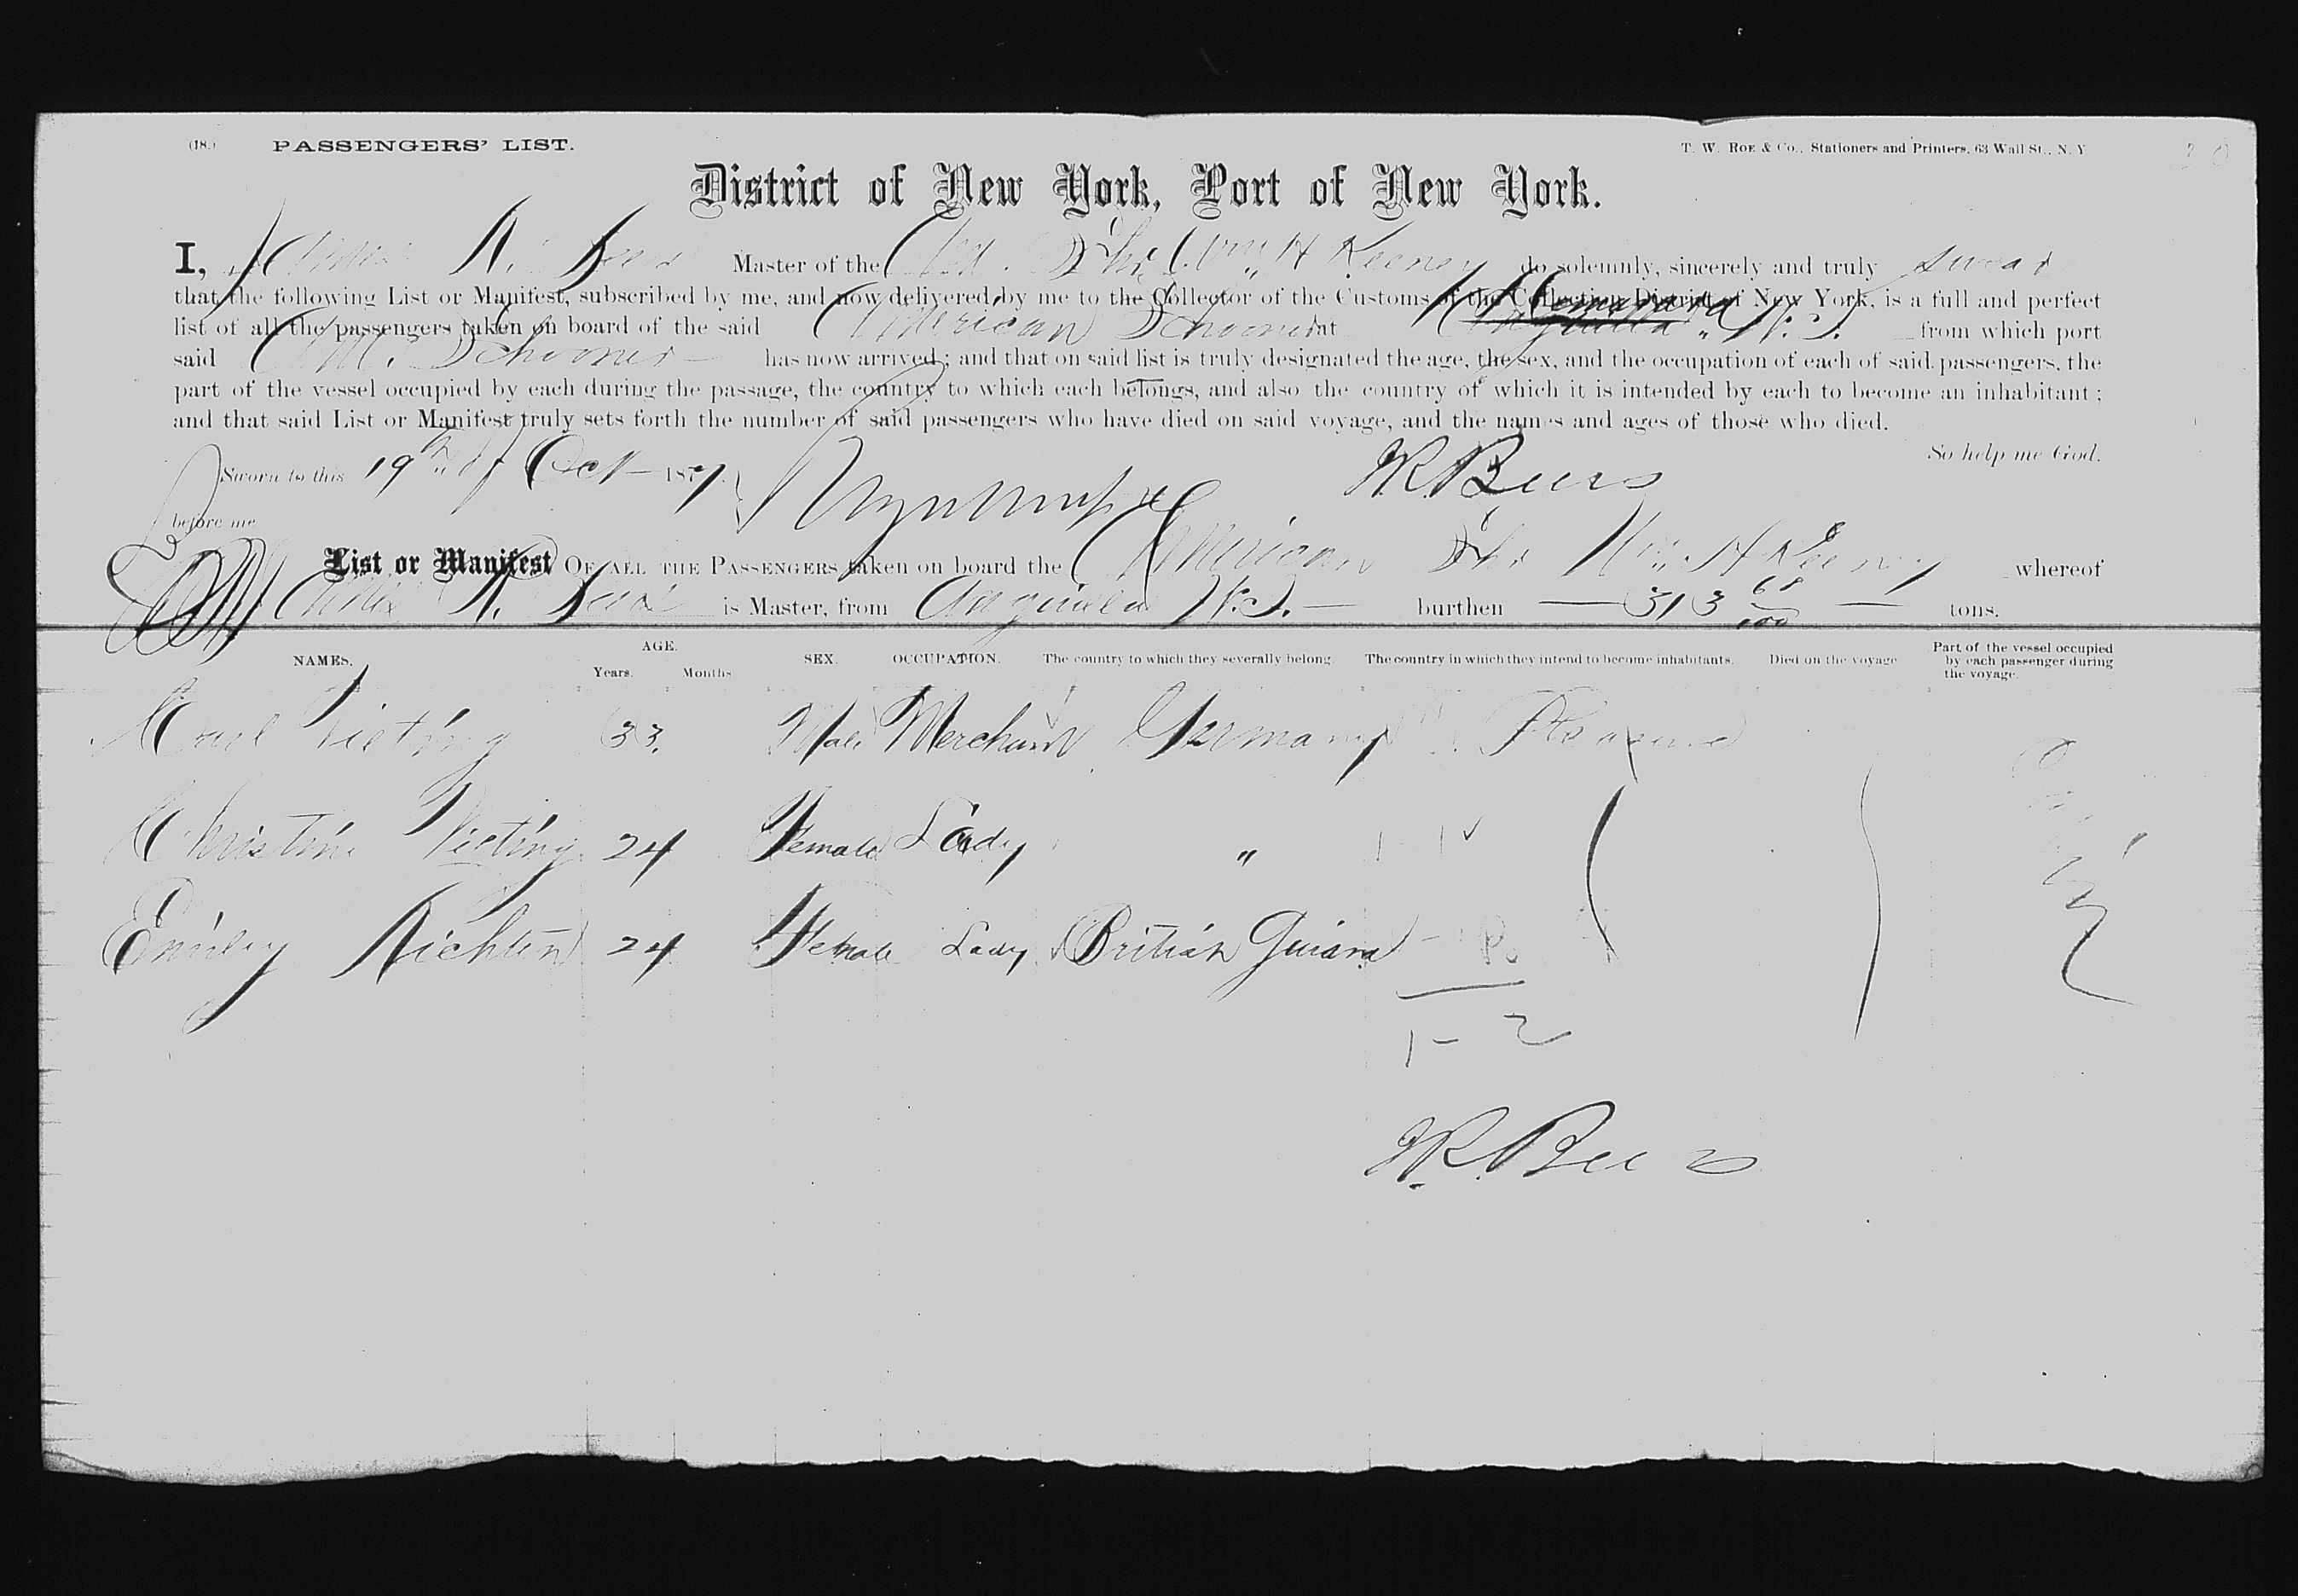 (18.) PASSENGERS' LIST. T. W. ROE & CO., Stationers and Printers, 63 Wall St., N. Y
District of New York, Port of New York.
I, R. Master of the Schr Wm H Keeney do solemnly, sincerely and truly swear
that the following List or Manifest, subscribed by me, and now delivered by me to the Collector of the Customs of the Collection District of New York, is a full and perfect
list of all the passengers taken on board of the said American Schooner at Demarara from which port
said Am. Schooner has now arrived; and that on said list is truly designated the age, the sex, and the occupation of each of said passengers, the
part of the vessel occupied by each during the passage, the country to which each belongs, and also the country of which it is intended by each to become an inhabitant;
and that said List or Manifest truly sets forth the number of said passengers who have died on said voyage, and the names and ages of those who died.
So help me God.
Sworn to this 19th of Oct 187 R. Beers
before me
List or Manifest OF ALL THE PASSENGERS taken on board the American Schr Wm H Keeney whereof
R. is Master, from Anguilla W.I. burthen 313 68/100 tons.
NAMES. AGE. Years. Months SEX. OCCUPATION. The country to which they severally belong. The country in which they intend to become inhabitants. Died on the voyage Part of the vessel occupied by each passenger during the voyage.
Vieting 33. Male Merchant Germany
Christine Vieting 24 Female Lady "
Emily 24 Female Lady British Guiana
1 - 2
R. Beers